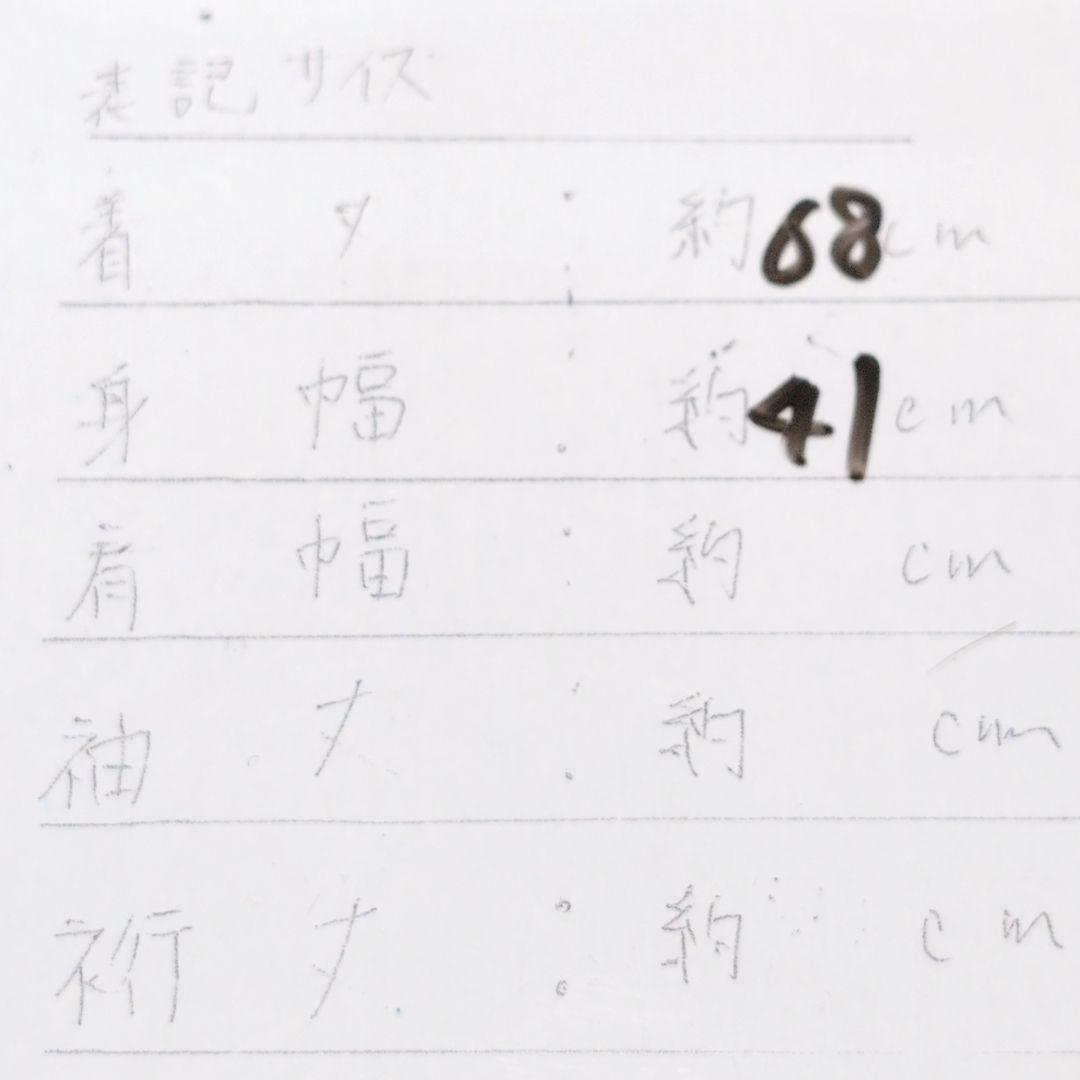 表記サイズ
着丈：約68cm
身幅：約41cm
肩幅：約 cm
袖丈：約 cm
裄丈：約 cm